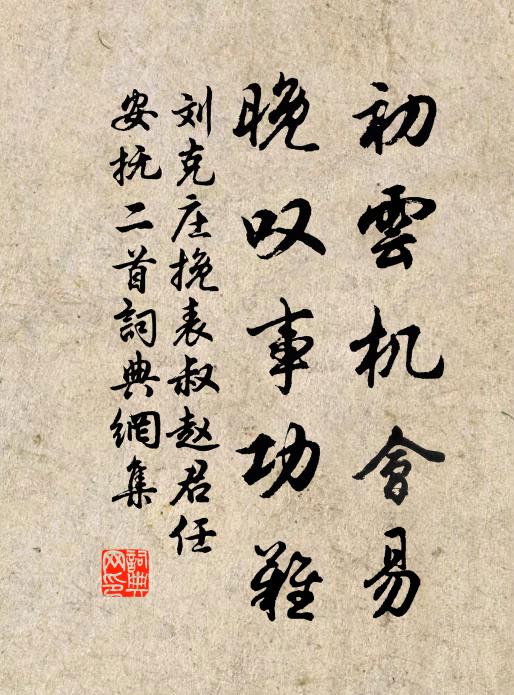 初雲机會易
晚叹事功難
刘克庄挽表叔赵君任
安抚二首詞典網集
詞典網印